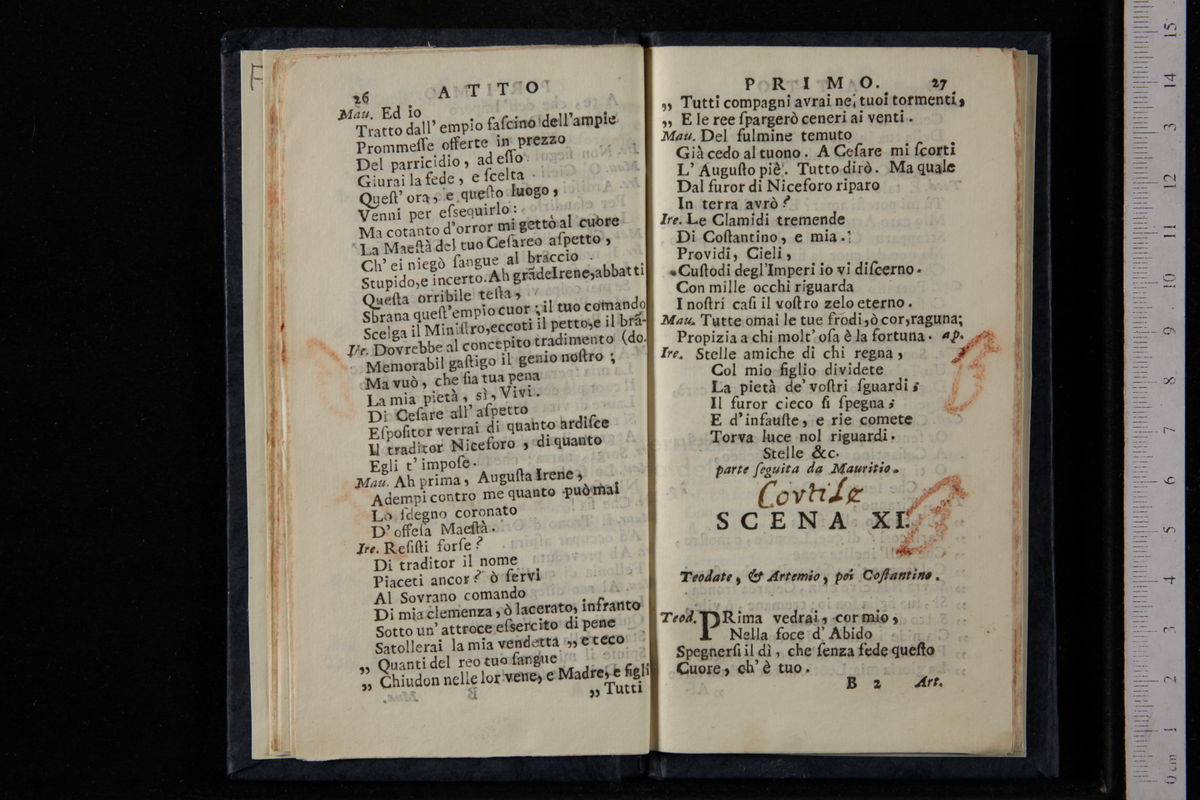 26 ATTO
Mau. Ed io
Tratto dall' empio faſcino dell'ampie
Prommeſſe offerte in prezzo
Del parricidio, ad eſſo
Giurai la fede, e ſcelta
Queſt' ora, e queſto luogo,
Venni per eſsequirlo:
Ma cotanto d'orror mi gettò al cuore
La Maeſtà del tuo Ceſareo aſpetto,
Ch' ei niegò ſangue al braccio
Stupido, e incerto. Ah grãde Irene, abbatti
Queſta orribile teſta,
Sbrana queſt'empio cuor; il tuo comando
Scelga il Miniſtro, eccoti il petto, e il brã-
Ire. Dovrebbe al concepito tradimento (do.
Memorabil gaſtigo il genio noſtro;
Ma vuò, che ſia tua pena
La mia pietà, sì, Vivi.
Di Ceſare all' aſpetto
Eſpoſitor verrai di quanto ardiſce
Il traditor Niceforo, di quanto
Egli t' impoſe.
Mau. Ah prima, Auguſta Irene,
Adempi contro me quanto può mai
Lo ſdegno coronato
D' offeſa Maeſtà.
Ire. Reſiſti forſe?
Di traditor il nome
Piaceti ancor? ò ſervi
Al Sovrano comando
Di mia clemenza, ò lacerato, infranto
Sotto un' attroce eſsercito di pene
Satollerai la mia vendetta „ e teco
„ Quanti del reo tuo ſangue
„ Chiudon nelle lor vene, e Madre, e figli
„ Tutti
PRIMO. 27
„ Tutti compagni avrai ne' tuoi tormenti,
„ E le ree ſpargerò ceneri ai venti.
Mau. Del fulmine temuto
Già cedo al tuono. A Ceſare mi ſcorti
L' Auguſto piè. Tutto dirò. Ma quale
Dal furor di Niceforo riparo
In terra avrò?
Ire. Le Clamidi tremende
Di Coſtantino, e mia.
Providi, Cieli,
Cuſtodi degl'Imperi io vi diſcerno.
Con mille occhi riguarda
I noſtri caſi il voſtro zelo eterno.
Mau. Tutte omai le tue frodi, ò cor, raguna;
Propizia a chi molt' oſa è la fortuna. ap.
Ire. Stelle amiche di chi regna,
Col mio figlio dividete
La pietà de' voſtri ſguardi;
Il furor cieco ſi ſpegna;
E d' infauſte, e rie comete
Torva luce nol riguardi.
Stelle &c.
parte ſeguita da Mauritio.
Cortile
SCENA XI.
Teodate, & Artemio, poi Coſtantino.
Teod. PRima vedrai, cor mio,
Nella foce d' Abido
Spegnerſi il dì, che ſenza fede queſto
Cuore, ch' è tuo.
B 2 Art.